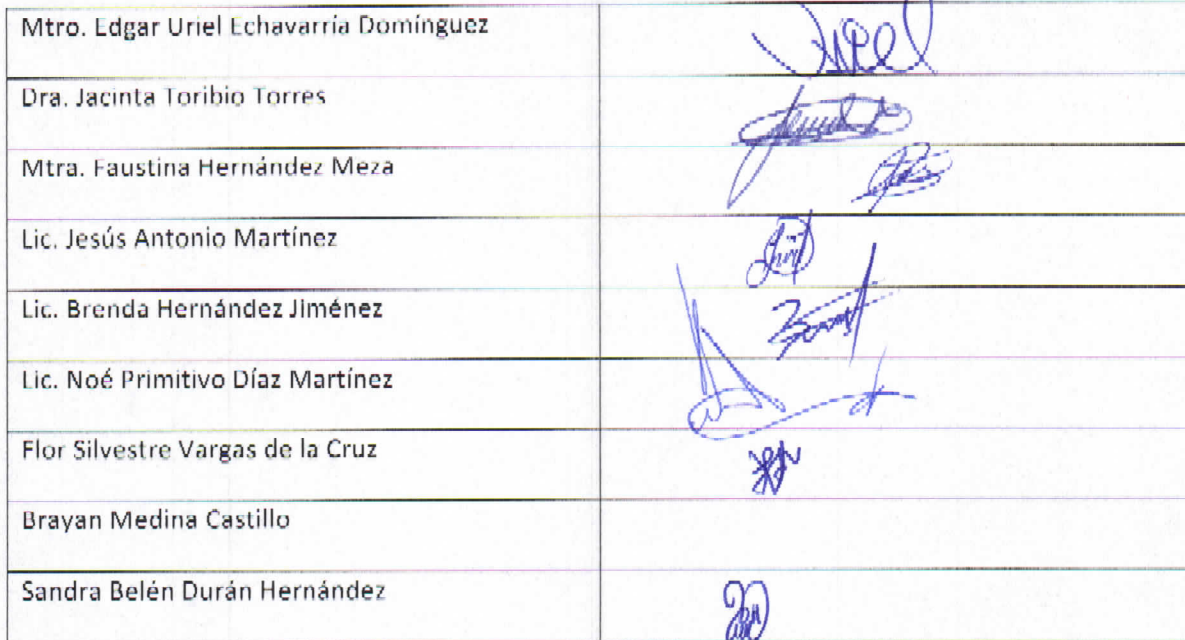 Mtro. Edgar Uriel Echavarría Domínguez
Dra. Jacinta Toribio Torres
Mtra. Faustina Hernández Meza
Lic. Jesús Antonio Martínez
Lic. Brenda Hernández Jiménez
Lic. Noé Primitivo Díaz Martínez
Flor Silvestre Vargas de la Cruz
Brayan Medina Castillo
Sandra Belén Durán Hernández